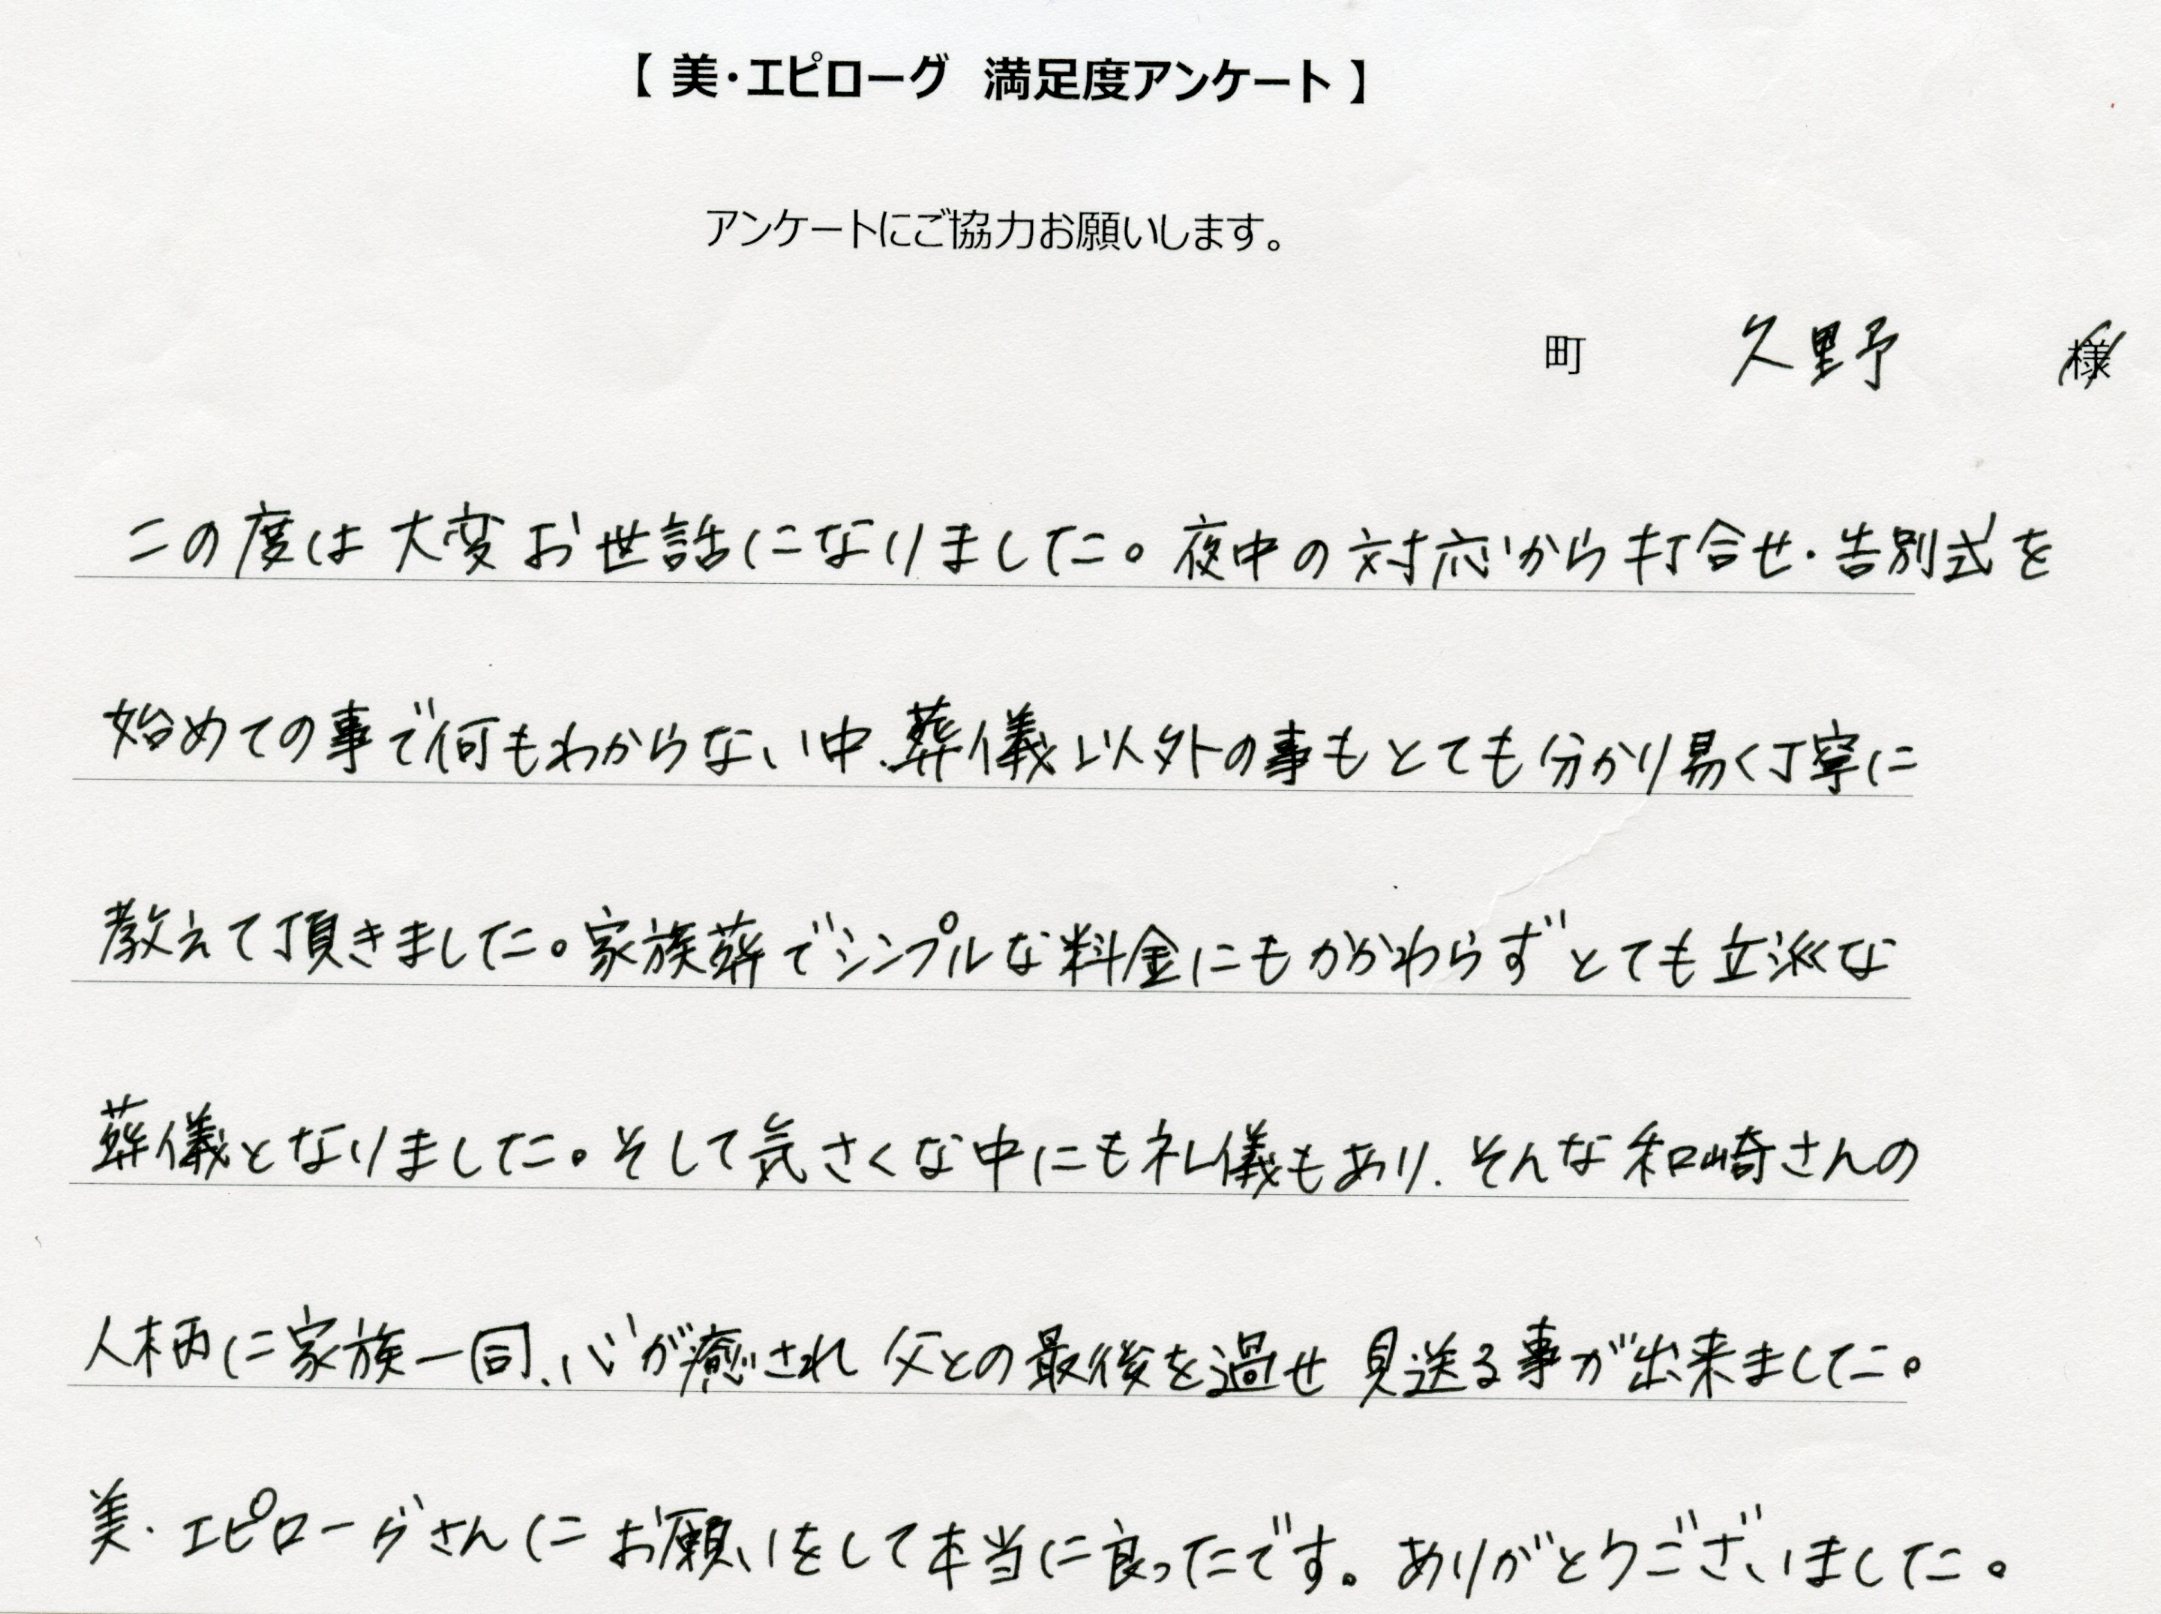 【 美・エピローグ 満足度アンケート 】
アンケートにご協力お願いします。
町 久野 様
この度は大変お世話になりました。夜中の対応から打合せ・告別式を
始めての事で何もわからない中、葬儀以外の事もとても分かり易く丁寧に
教えて頂きました。家族葬でシンプルな料金にもかかわらずとても立派な
葬儀となりました。そして気さくな中にも礼儀もあり、そんな和崎さんの
人柄に家族一同、心が癒され父との最後を過せ見送る事が出来ました。
美・エピローグさんにお願いをして本当に良ったです。ありがとうございました。